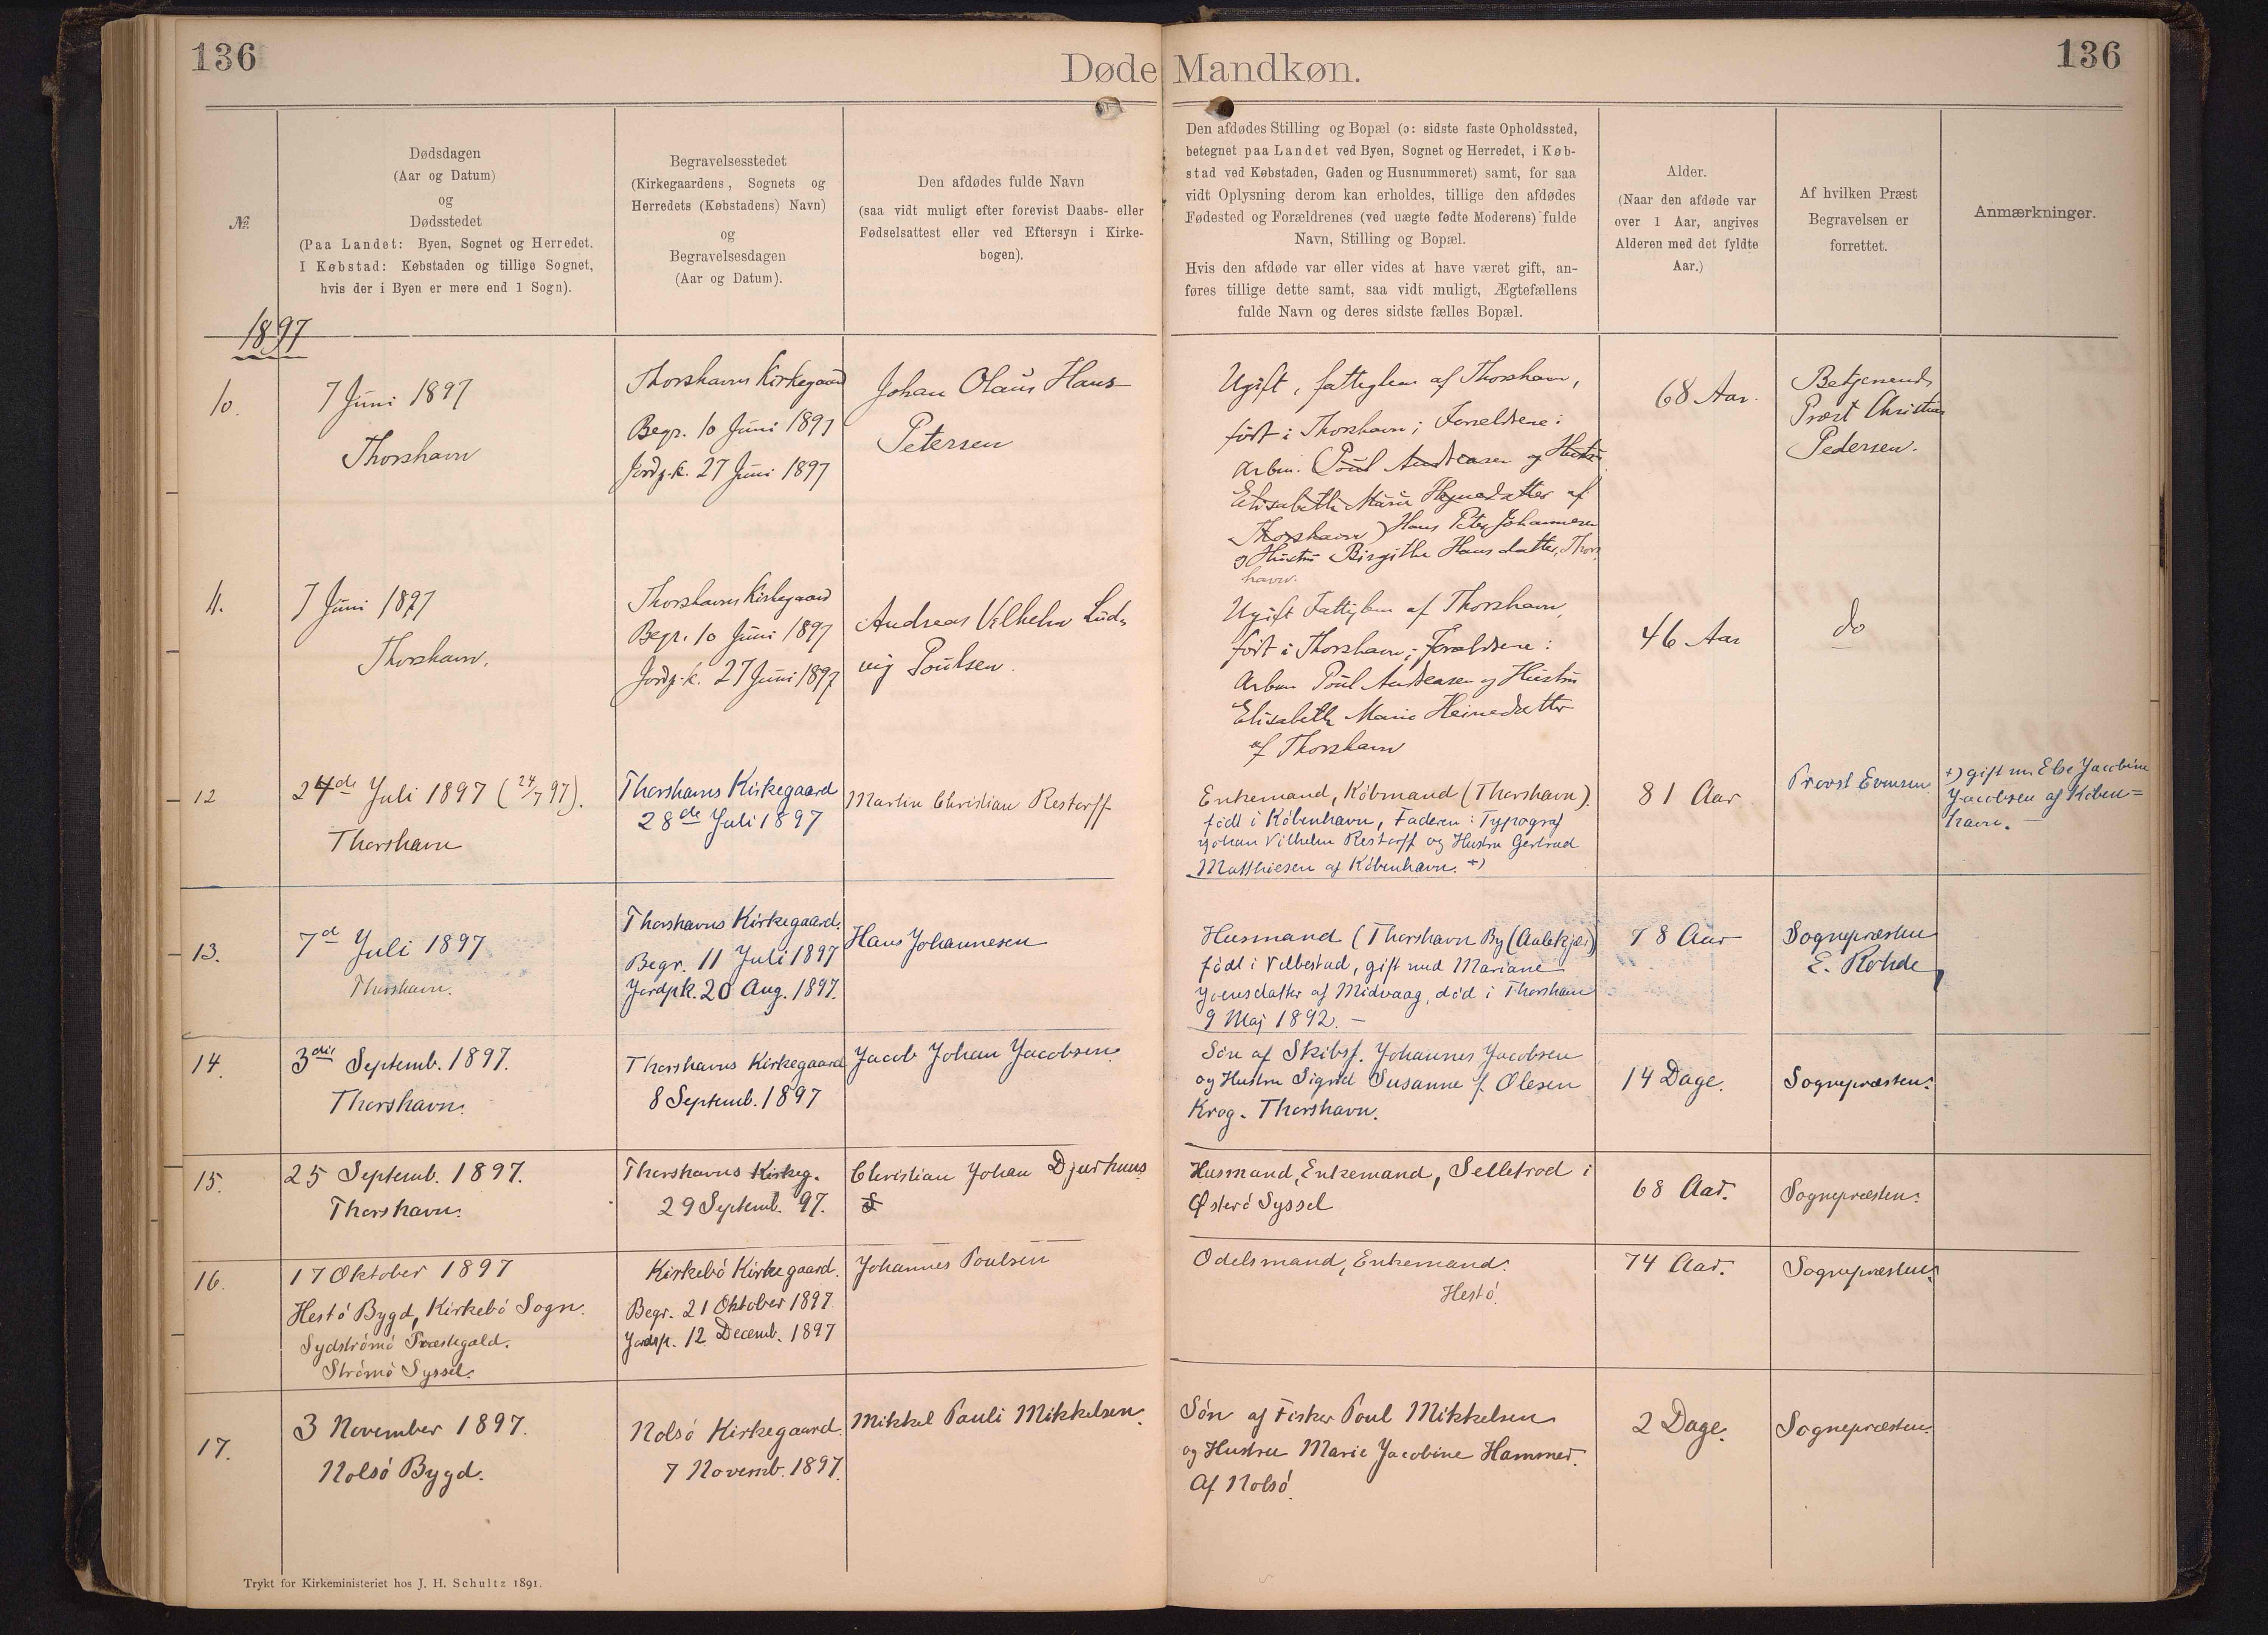 136
Døde Mandkøn.
136
№.
Dødsdagen
(Aar og Datum)
og
Dødsstedet
(Paa Landet: Byen, Sognet og Herredet.
I Købstad: Købstaden og tillige Sognet,
hvis der i Byen er mere end 1 Sogn).
Begravelsesstedet
(Kirkegaardens, Sognets og
Herredets (Købstadens) Navn)
og
Begravelsesdagen
(Aar og Datum).
Den afdødes fulde Navn
(saa vidt muligt efter forevist Daabs- eller
Fødselsattest eller ved Eftersyn i Kirke-
bogen).
Den afdødes Stilling og Bopæl (ɔ: sidste faste Opholdssted,
betegnet paa Landet ved Byen, Sognet og Herredet, i Køb-
stad ved Købstaden, Gaden og Husnummeret) samt, for saa
vidt Oplysning derom kan erholdes, tillige den afdødes
Fødested og Forældrenes (ved uægte fødte Moderens) fulde
Navn, Stilling og Bopæl.
Hvis den afdøde var eller vides at have været gift, an-
føres tillige dette samt, saa vidt muligt, Ægtefællens
fulde Navn og deres sidste fælles Bopæl.
Alder.
(Naar den afdøde var
over 1 Aar, angives
Alderen med det fyldte
Aar.)
Af hvilken Præst
Begravelsen er
forrettet.
Anmærkninger.
1897
10.
7 Juni 1897
Thorshavn
Thorshavns Kirkegaard
Begr. 10 Juni 1897
Jordp.k. 27 Juni 1897
Johan Olaus Hans
Petersen
Ugift, fattiglem af Thorshavn,
født i Thorshavn; Forældrene:
Arbm. (Poul Andreasen og Hustru
Elisabeth Marie Heinedatter af
Thorshavn) Hans Peter Johannesen
og Hustru Birgithe Hansdatter, Thors
havn.
68 Aar.
Betjenende
Præst Christian
Pedersen.
11.
7 Juni 1897
Thorshavn.
Thorshavns Kirkegaard
Begr. 10 Juni 1897
Jordp.k. 27 Juni 1897
Andreas Vilhelm Lud-
vig Poulsen.
Ugift Fattiglem af Thorshavn,
født i Thorshavn; Forældrene:
Arbm Poul Andreasen og Hustru
Elisabeth Marie Heinedatter
af Thorshavn
46 Aar
do
12
24de Juli 1897 (24/7 97).
Thorshavn
Thorshavns Kirkegaard
28de Juli 1897
Martin Christian Restorff
Enkemand, Købmand (Thorshavn).
født i København, Faderen: Typograf
Johan Vilhelm Restorff og Hustru Gertrud
Matthiesen af København. +)
81 Aar
Provst Evensen
+) gift m. Else Jacobine
Jacobsen af Køben=
havn. —
13.
7d Juli 1897
Thorshavn.
Thorshavns Kirkegaard.
Begr. 11 Juli 1897
Jordpk. 20 Aug. 1897.
Hans Johannesen
Husmand (Thorshavn By (Aalekjær))
født i Velbestad, gift med Mariane
Joensdatter af Midvaag, død i Thorshavn
9 Maj 1892. —
78 Aar
Sognepræsten
E. Rohde
14.
3die Septemb. 1897.
Thorshavn.
Thorshavns Kirkegaard
8 Septemb. 1897
Jacob Johan Jacobsen.
Søn af Skibsf. Johannes Jacobsen
og Hustru Sigrid Susanne f. Olesen
Krog. Thorshavn.
14 Dage.
Sognepræsten.
15.
25 Septemb. 1897.
Thorshavn.
Thorshavns Kirkeg.
29 Septemb. 97.
Christian Johan Djurhuus
Husmand, Enkemand, Selletrod i
Østerø Syssel
68 Aar.
Sognepræsten.
16.
17 Oktober 1897
Hestø Bygd, Kirkebø Sogn.
Sydstrømø Præstegald.
Strømø Syssel.
Kirkebø Kirkegaard.
Begr. 21 Oktober 1897
Jordsp. 12 Decemb. 1897
Johannes Poulsen
Odelsmand, Enkemand.
Hestø.
74 Aar.
Sognepræsten.
17.
3 November 1897.
Nolsø Bygd.
Nolsø Kirkegaard.
7 Novemb. 1897.
Mikkel Pauli Mikkelsen.
Søn af Fisker Poul Mikkelsen
og Hustru Marie Jacobine Hammer.
Af Nolsø.
2 Dage.
Sognepræsten.
Trykt for Kirkeministeriet hos J. H. Schultz 1891.